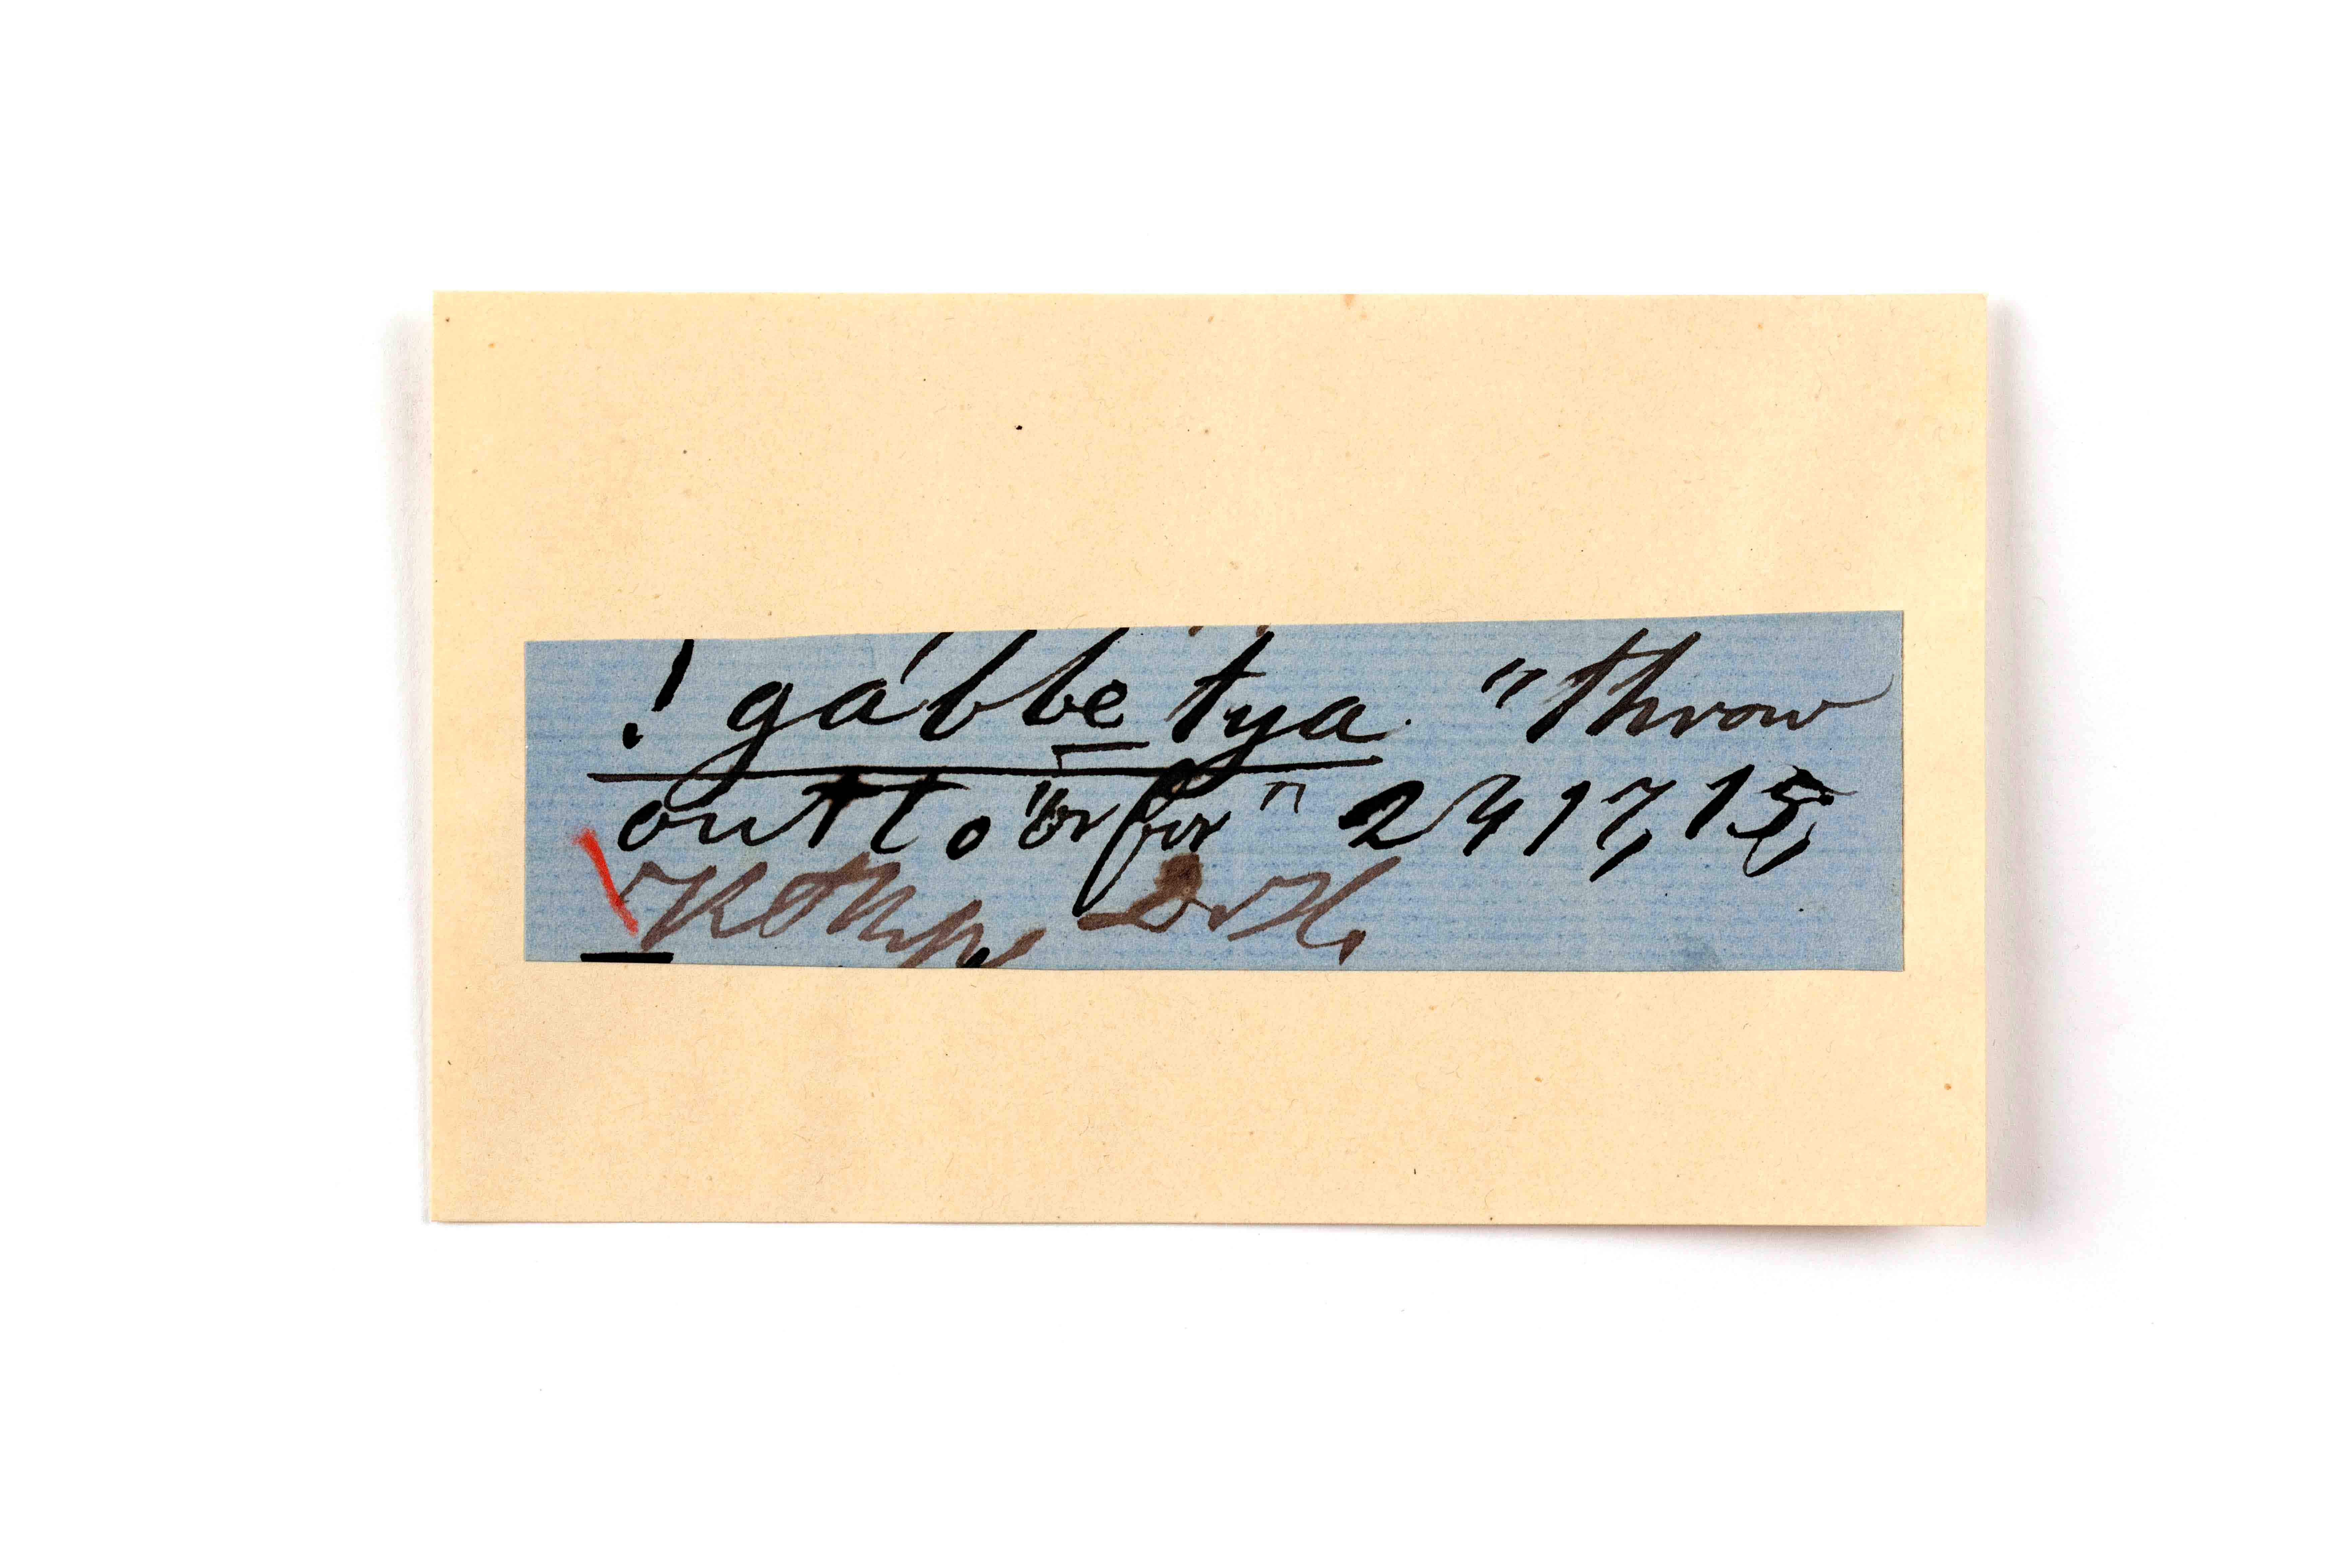 ! gábbe tya "throw
out to "or for" 2417, 15,